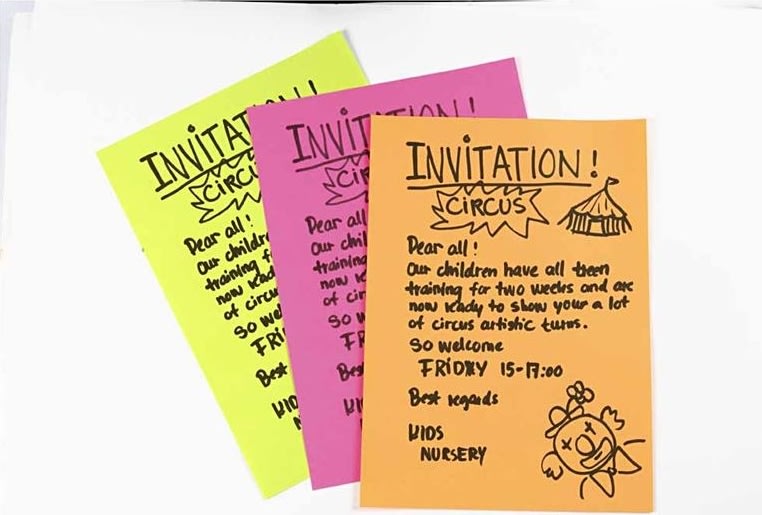 INVITA
CIRCU
Dear all!
Our childre
training f
now read
of circu
So wel
FRI
Best
KID
N
INVITATION!
CIR
Dear all
Our chil
training
now re
of cir
So w
FR
Be
KI
INVITATION!
CIRCUS
Dear all!
Our children have all been
training for two weeks and are
now ready to show your a lot
of circus artistic turns.
So welcome
FRIDAY 15-17:00
Best regards
KIDS
NURSERY